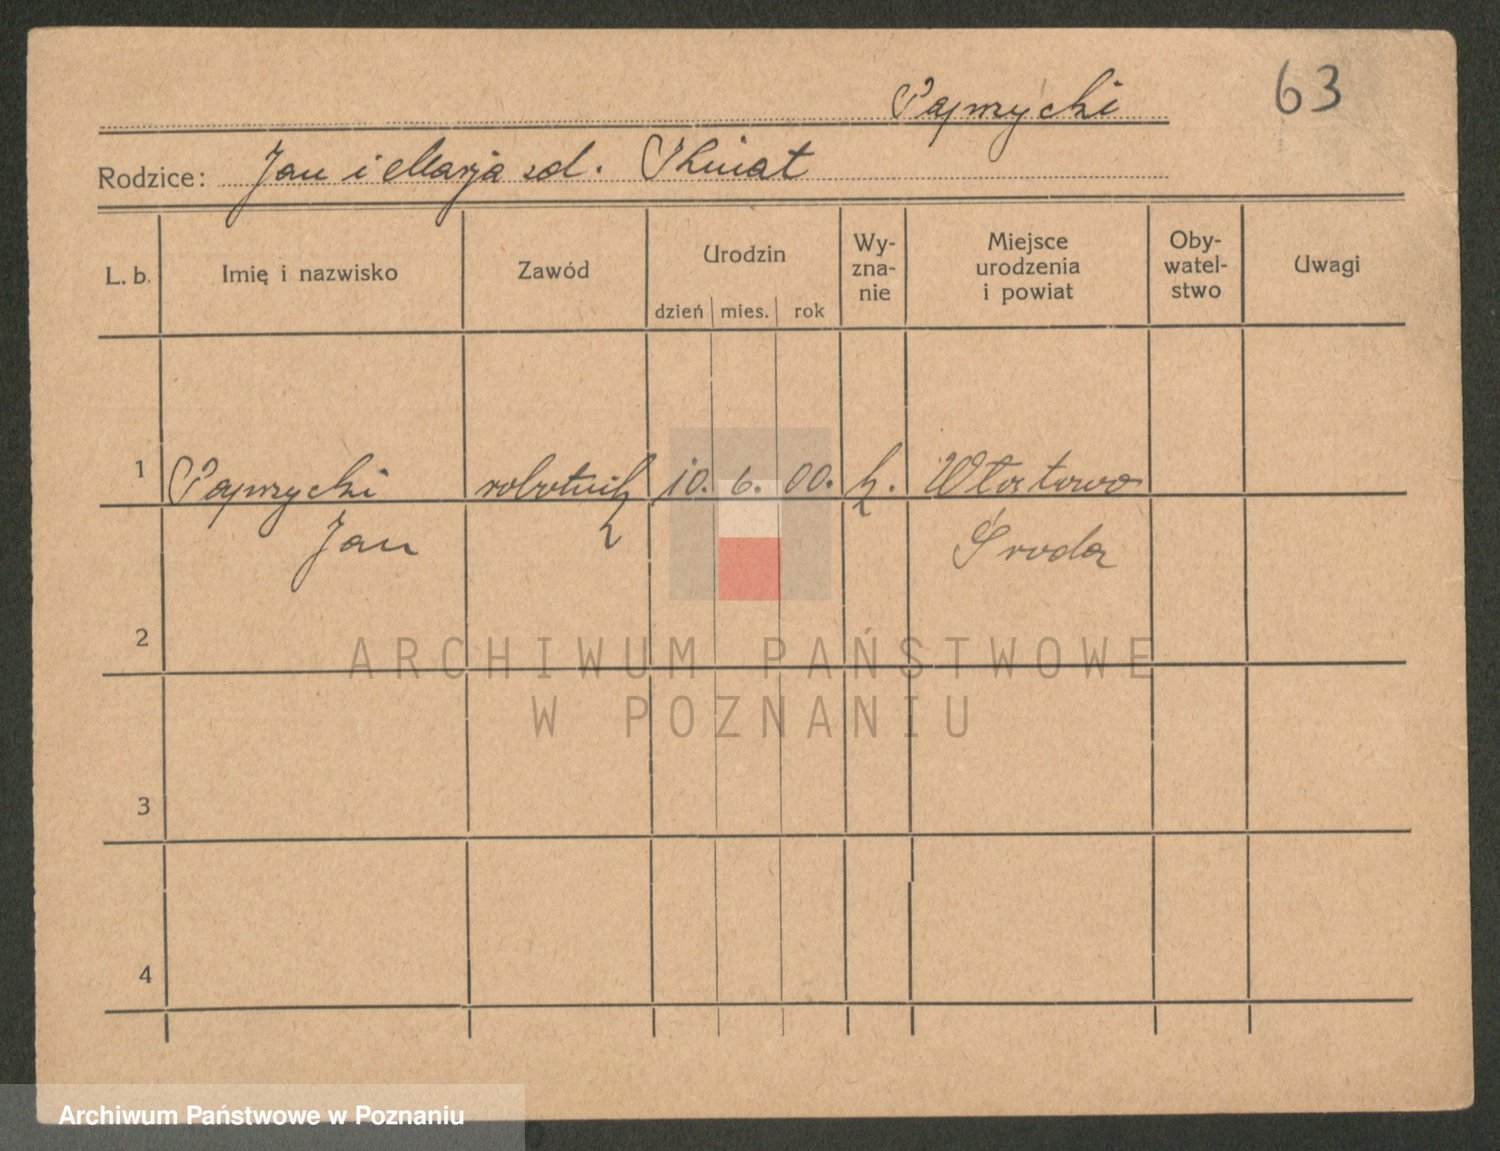 63
Paprzycki
Rodzice: Jan i Marja zd. Kwiat
L. b. Imię i nazwisko Zawód Urodzin Wy-zna-nie Miejsce urodzenia i powiat Oby-watel-stwo Uwagi
dzień mies. rok
1 Paprzycki robotnik 10. 6. 00. k. Włostowo
Jan Środa
2
3
4
ARCHIWUM PAŃSTWOWE
W POZNANIU
Archiwum Państwowe w Poznaniu